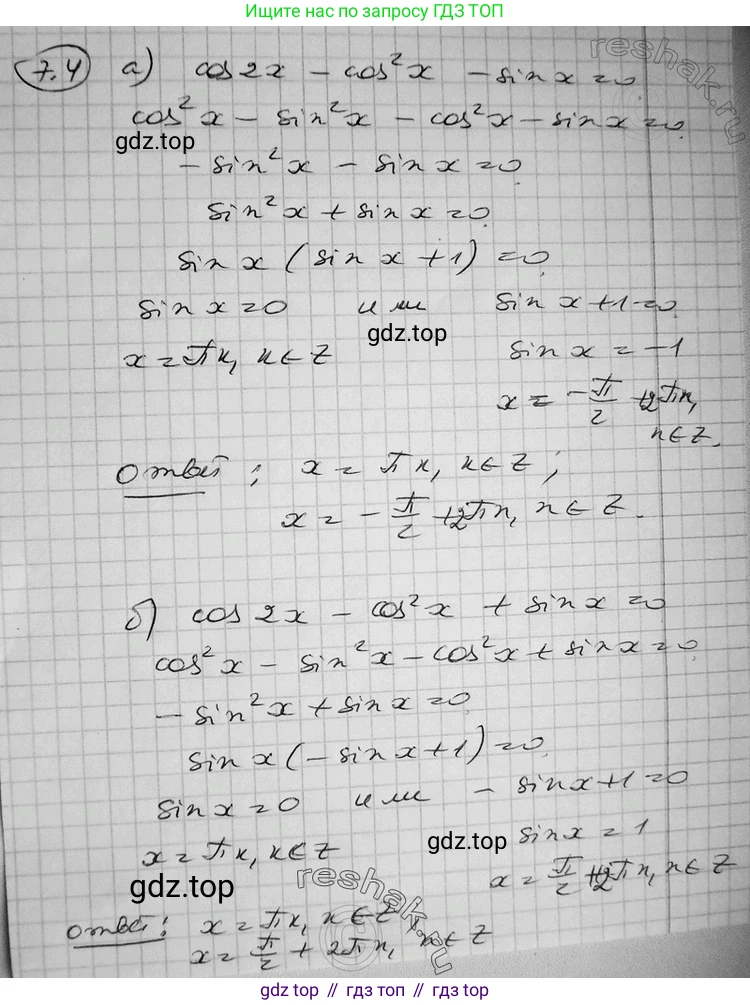 Ищите нас по запросу ГДЗ ТОП
7.4 а) cos2x - cos²x - sinx = 0
cos²x - sin²x - cos²x - sinx = 0
gdz.top
- sin²x - sinx = 0
sin²x + sinx = 0
sinx (sin x + 1) = 0
sinx = 0 или sinx + 1 = 0
gdz.top
x = πк, к ∈ Z sinx = -1
x = -π/2 + 2πn,
n ∈ Z.
Ответ: x = πк, к ∈ Z;
x = -π/2 + 2πn, n ∈ Z.
б) cos2x - cos²x + sinx = 0
cos²x - sin²x - cos²x + sinx = 0
- sin²x + sinx = 0
sinx (- sinx + 1) = 0
sinx = 0 или - sinx + 1 = 0
gdz.top sinx = 1
x = πк, к ∈ Z
x = π/2 + 2πn, n ∈ Z
gdz.top
reshak.ru
Ответ: x = πк, к ∈ Z;
x = π/2 + 2πn, n ∈ Z
gdz.top // gdz.top // gdz.top // gdz.top
reshak.ru